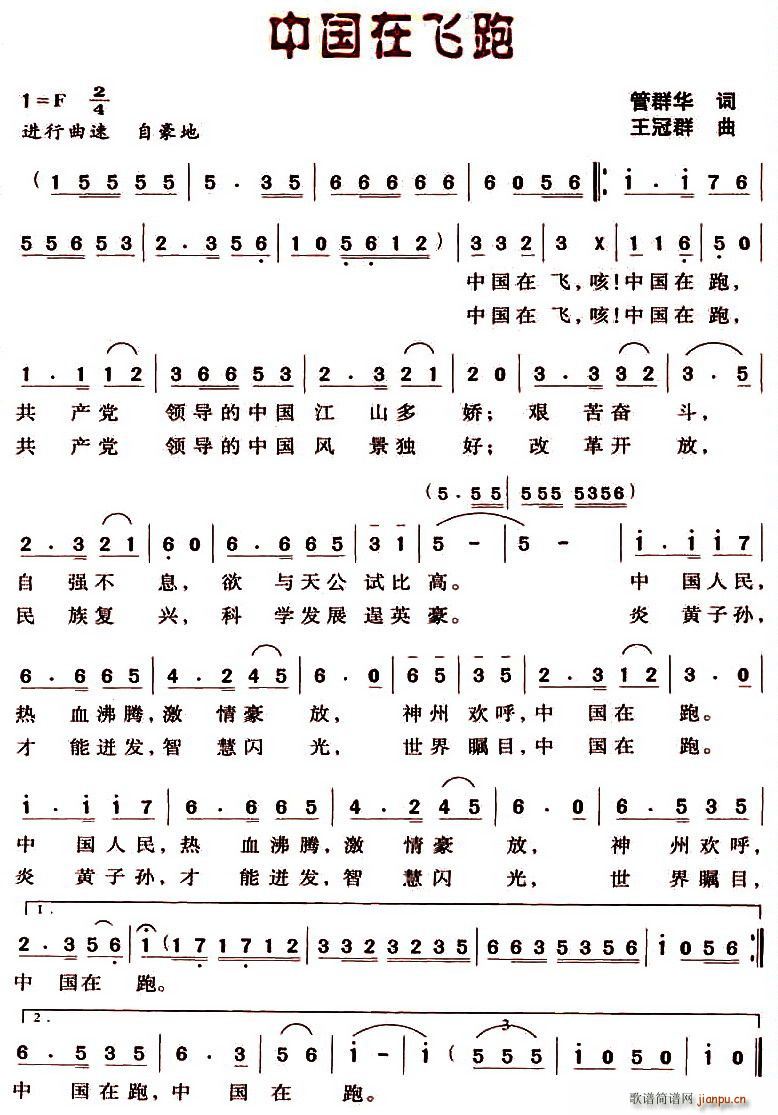 中国在飞跑
1=F 2/4
管群华 词
进行曲速 自豪地
王冠群 曲
(1 5 5 5 5 | 5 · 3 5 | 6 6 6 6 6 | 6 0 5 6 ‖: i · i 7 6 |
5 5 6 5 3 | 2 · 3 5 6 | 1 0 5 6 1 2) | 3 3 2 | 3 X | 1 1 6 | 5 0
中国在 飞,咳!中国在 跑,
中国在 飞,咳!中国在 跑,
1 · 1 1 2 | 3 6 6 5 3 | 2 · 3 2 1 | 2 0 | 3 · 3 3 2 | 3 · 5
共 产党 领导的中国江 山多 娇; 艰 苦奋 斗,
共 产党 领导的中国风 景独 好; 改 革开 放,
(5 · 5 5 | 5 5 5 5 3 5 6)
2 · 3 2 1 | 6 0 | 6 · 6 6 5 | 3 1 | 5 - | 5 - | i · i i 7
自 强不 息,欲 与天公 试比 高。 中 国人民,
民 族复 兴,科 学发展 逞英 豪。 炎 黄子孙,
6 · 6 6 5 | 4 · 2 4 5 | 6 · 0 | 5 5 | 3 5 | 2 · 3 1 2 | 3 · 0
热 血沸腾,激 情豪 放, 神州 欢呼,中 国在 跑。
才 能迸发,智 慧闪 光, 世界 瞩目,中 国在 跑。
i · i i 7 | 6 · 6 6 5 | 4 · 2 4 5 | 6 · 0 | 6 · 5 3 5
中 国人民,热 血沸腾,激 情豪 放, 神 州欢呼,
炎 黄子孙,才 能迸发,智 慧闪 光, 世 界瞩目,
1.
2 · 3 5 6 | i (1 7 1 7 1 7 1 2 | 3 3 2 3 3 2 3 5 | 6 6 3 5 5 3 5 6 | i 0 5 6 :‖
中 国在 跑。
2.
6 · 5 3 5 | 6 · 3 | 5 6 | i - | i ( 5 5 5 | i 0 5 0 | i 0 ) ‖
3
中 国在跑,中 国在 跑。
歌谱简谱网 jianpu.cn